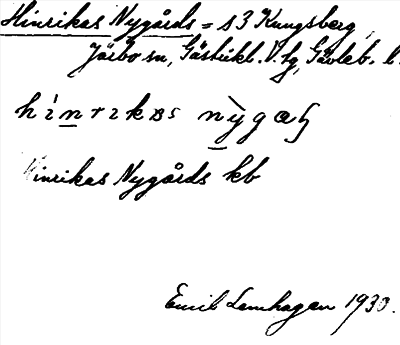 Hinrikas Nygårds = s 3 Kungsberg,
Järbo sn, Gästrikl. V. tg, Gävleb. l.
hinrikas nygaṣ
Hinrikas Nygårds kb
Emil Lamhagen 1930.